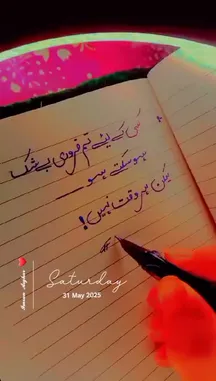 کسی کے لیئے تم ضروری بے شک
ہو سکتے ہو ــــــ
لیکن ہر وقت نہیں!
Saturday
31 May 2025